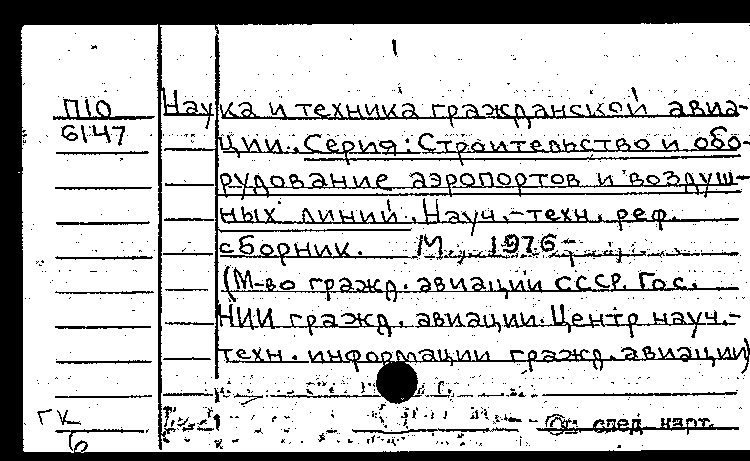 П10 Наука и техника гражданской авиа-
6147 ции. Серия: Строительство и обо-
рудование аэропортов и воздуш-
ных линий. Науч.-техн. реф.
сборник. М., 1976-
(М-во гражд. авиации СССР. Гос.
НИИ гражд. авиации. Центр науч.-
техн. информации гражд. авиации)
ГК
6 См след карт.